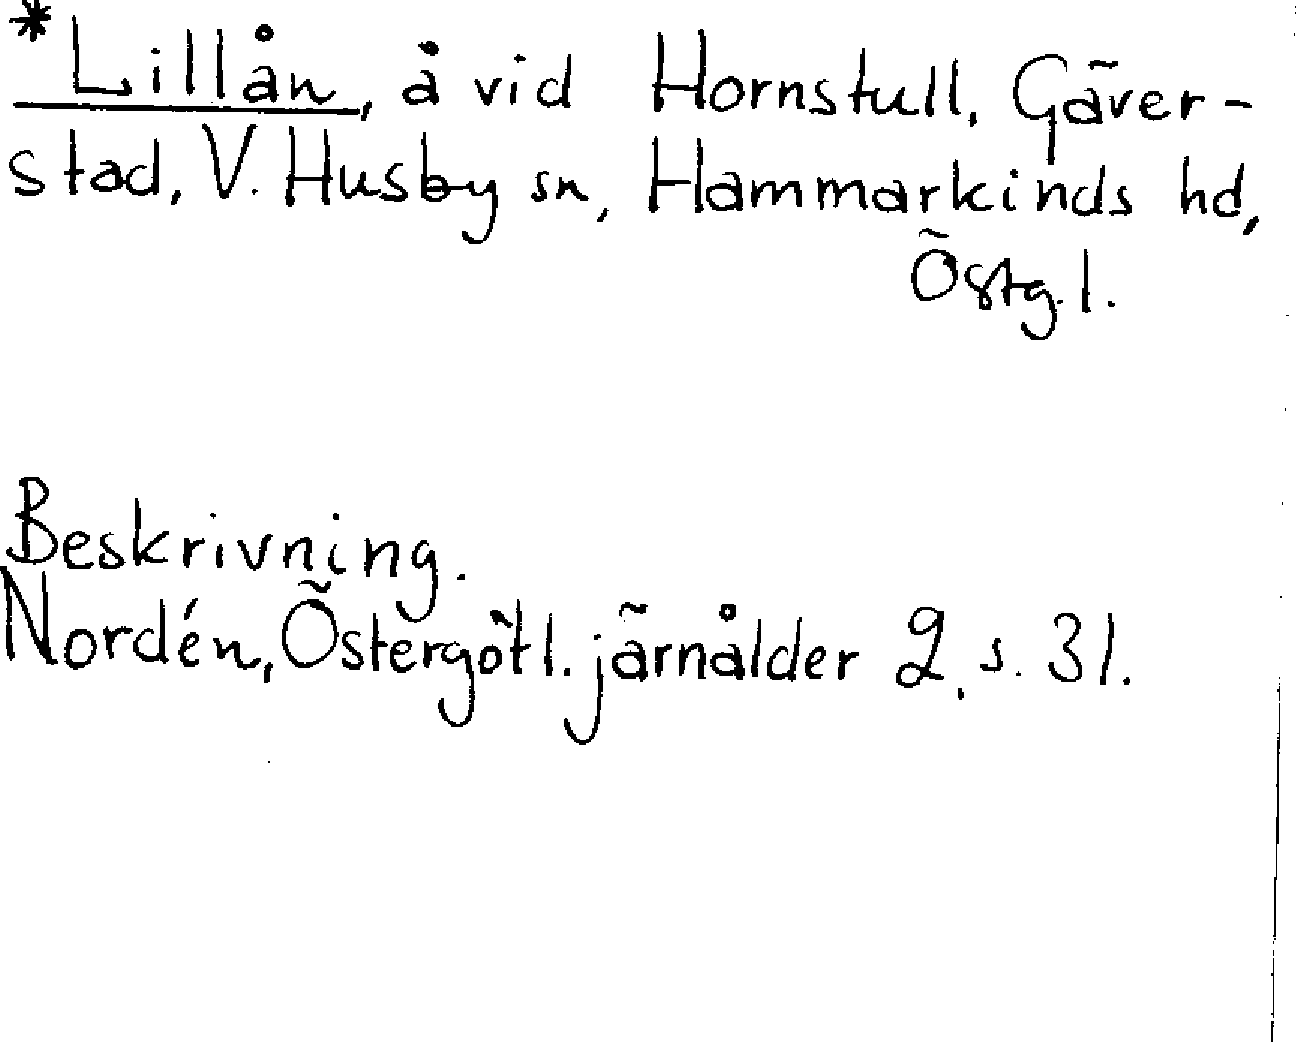 *Lillån, å vid Hornstull, Gäver-
stad, V. Husby sn, Hammarkinds hd,
Östg. l.
Beskrivning.
Nordén, Östergötl. järnålder 2, s. 31.